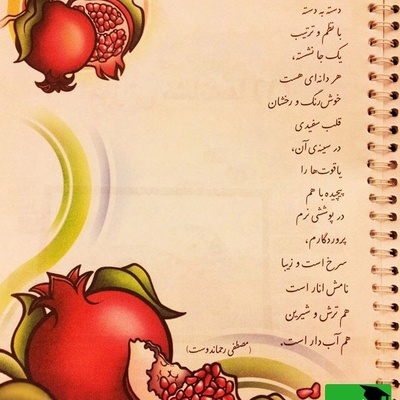 دسته به دسته
با نظم و ترتیب
یک جا نشسته،
هر دانه‌ای هست
خوش رنگ و رخشان
قلب سفیدی
در سینه‌ی آن،
یاقوت‌ها را
پیچیده با هم
در پوششی نرم
پروردگارم،
سرخ است و زیبا
نامش انار است
هم ترش و شیرین
هم آب دار است.
(مصطفی رحماندوست)